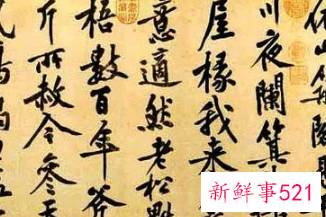 川夜闌箕
屋椽我来
意適然老松魁
梧數百年斧
斤所赦今參天
新鲜事521